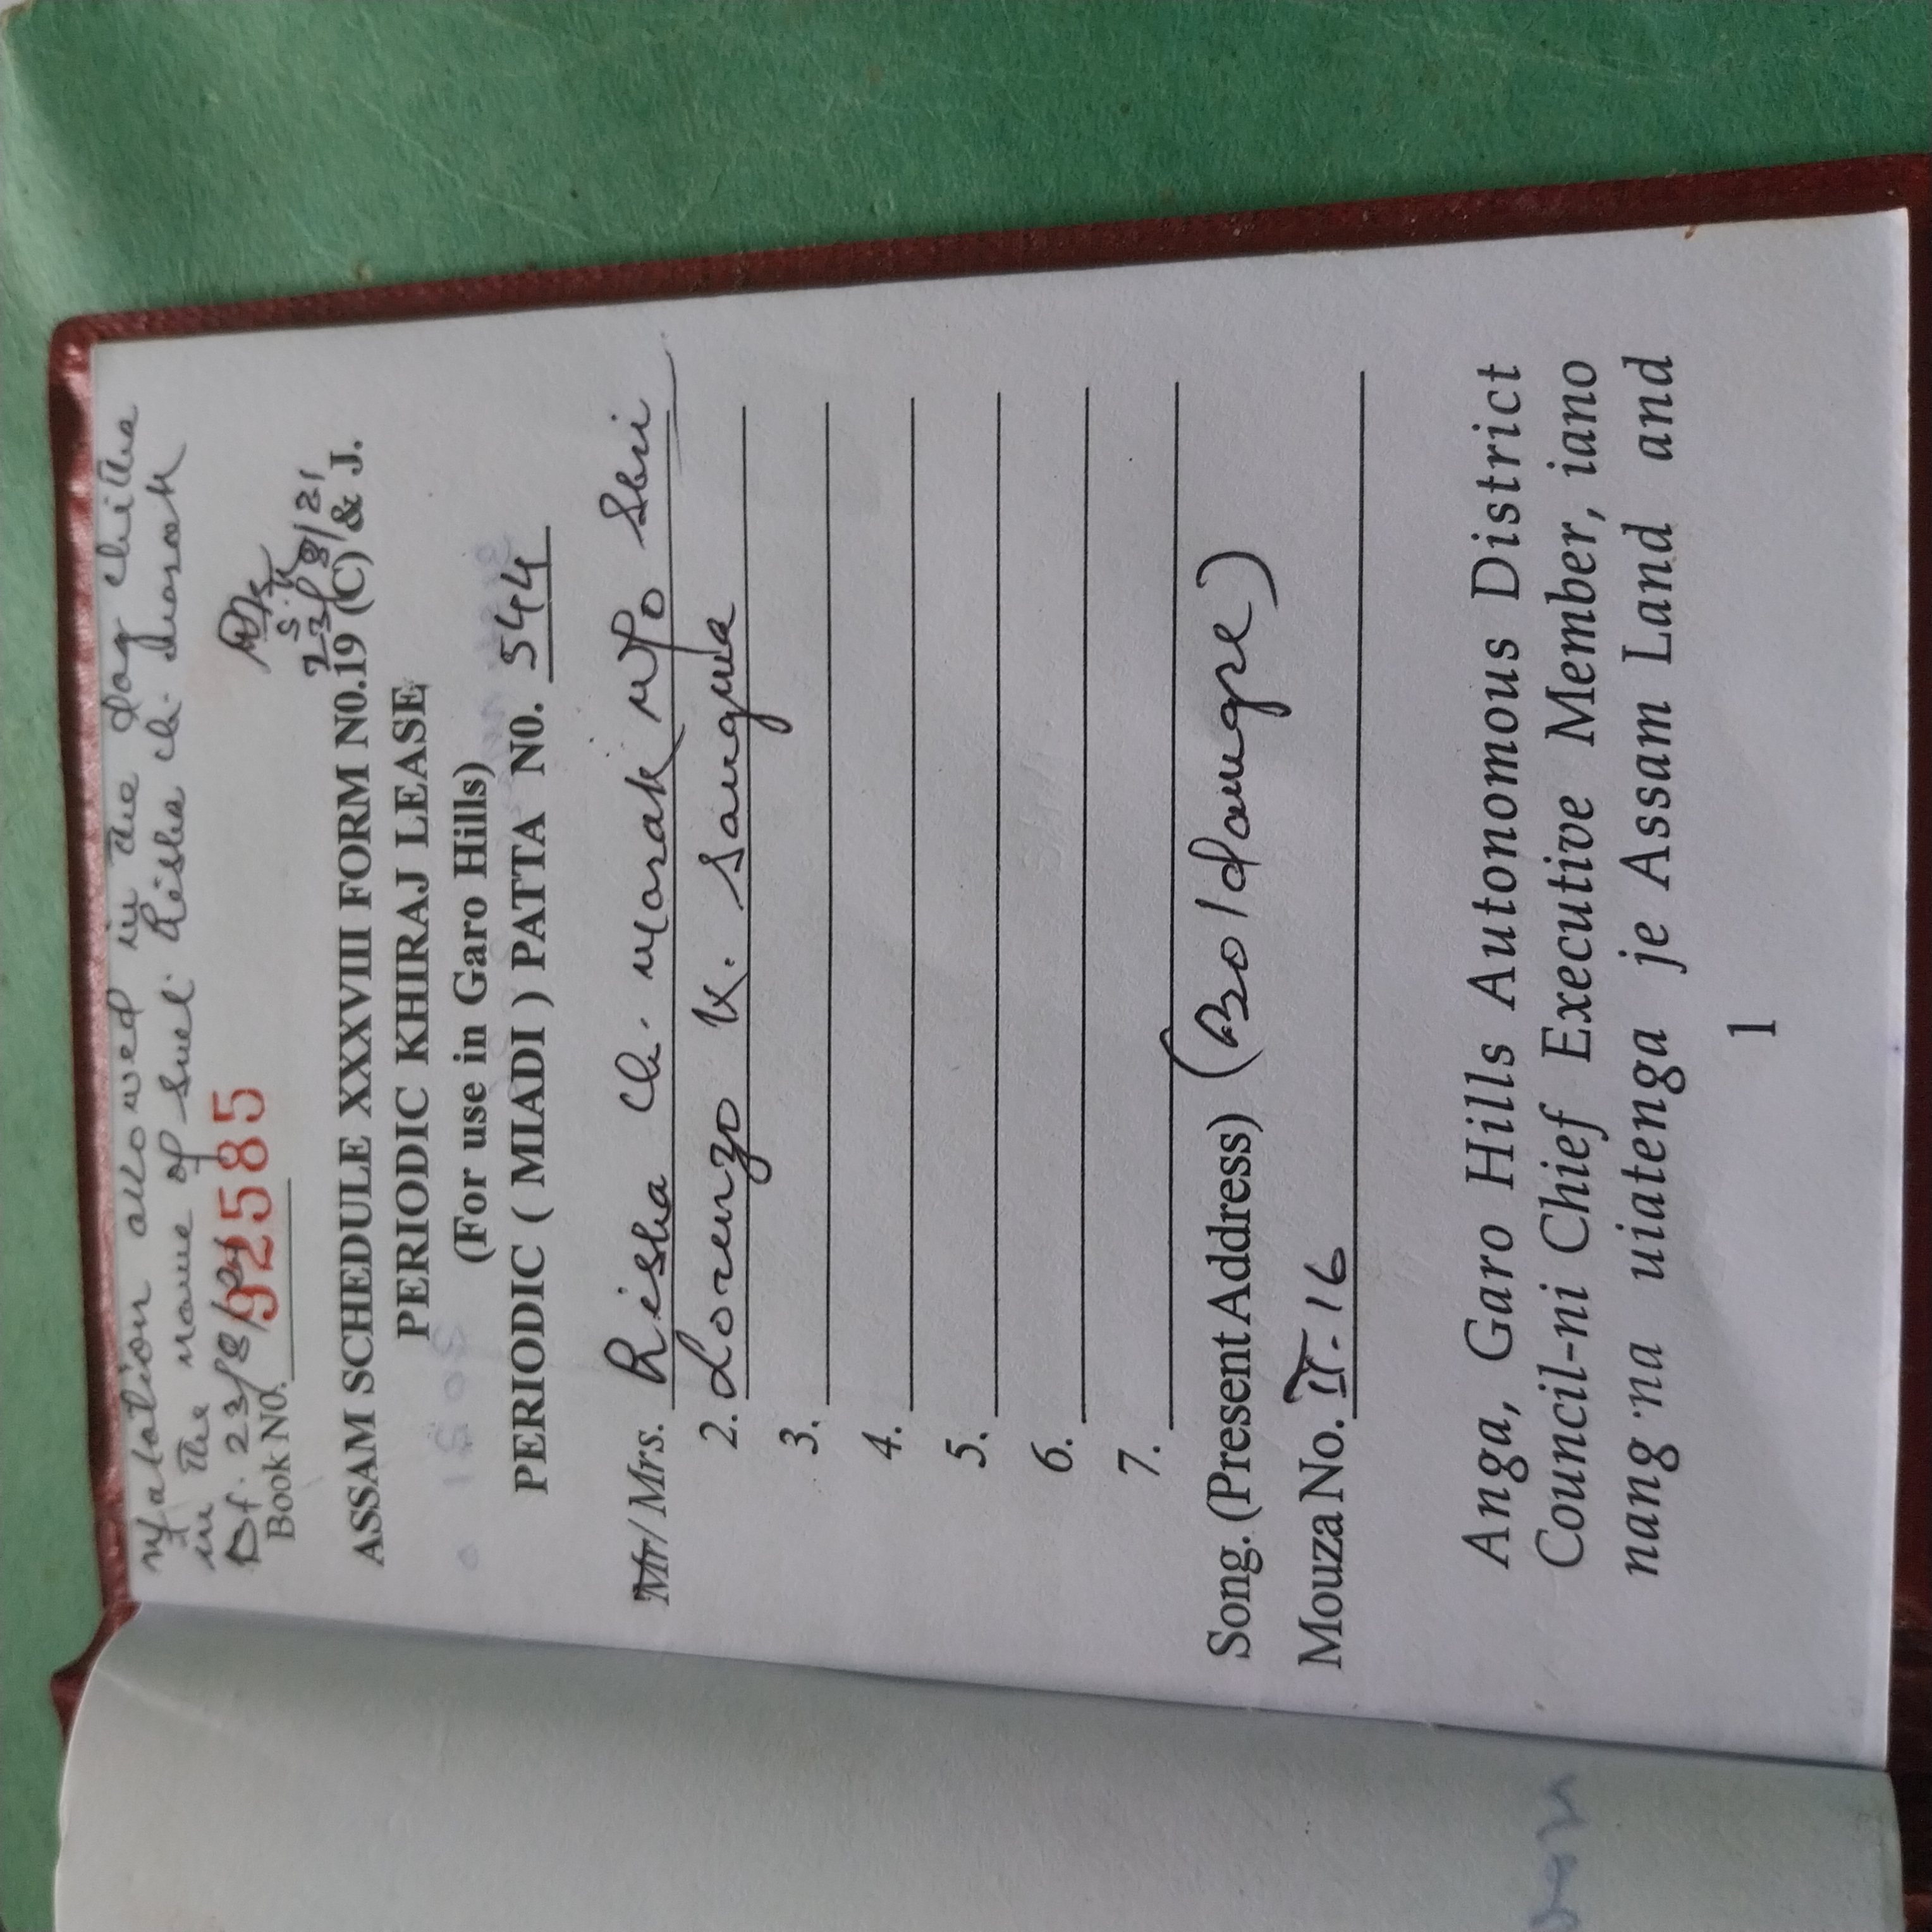 mutation allowed in the dag chitha
in the name of Smti. Risha Ch. Marak
Dt. 23/8/21
S.K
23/8/21
Book N0. 92585
ASSAM SCHEDULE XXXVIII FORM N0.19 (C) & J.
PERIODIC KHIRAJ LEASE
(For use in Garo Hills)
PERIODIC ( MIADI ) PATTA N0. 544
Mr/Mrs. Risha Ch. Marak W/o Shri
2. Lorenzo K. Sangma
3.
4.
5.
6.
7.
Song. (Present Address) (Boldamgre)
Mouza No. II-16
Anga, Garo Hills Autonomous District
Council-ni Chief Executive Member, iano
nang'na uiatenga je Assam Land and
1